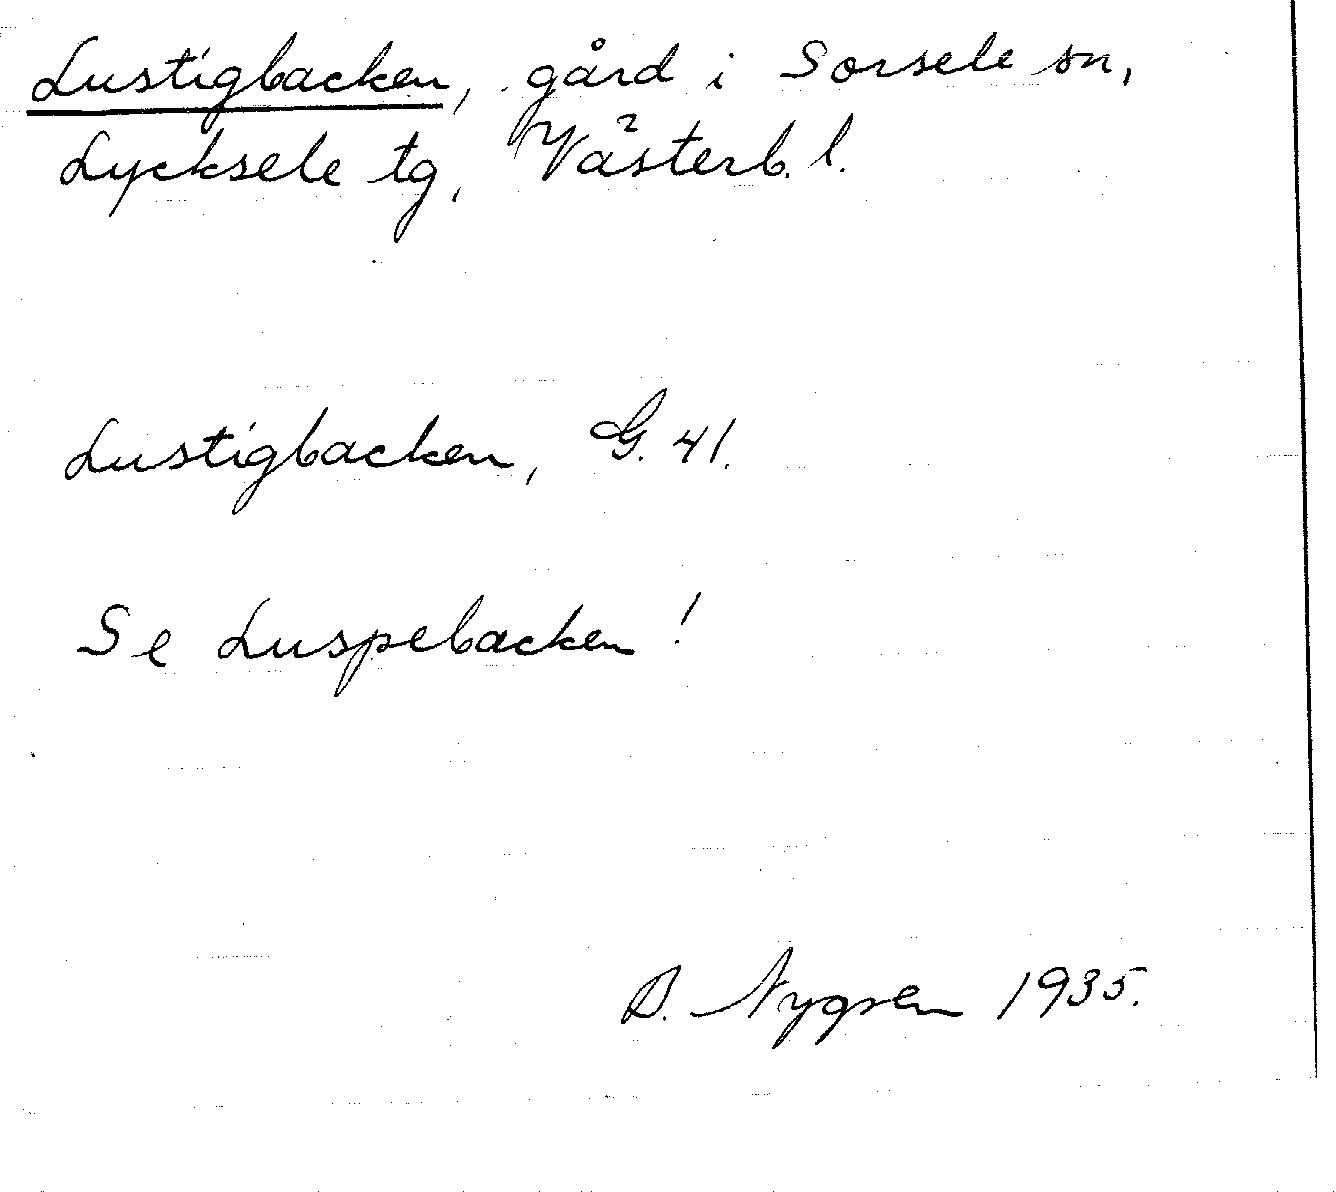 Lustigbacken, gård i Sorsele sn,
Lycksele tg, Västerb. l.
Lustigbacken, G. 41.
Se Luspebacken!
B. Nygren 1935.